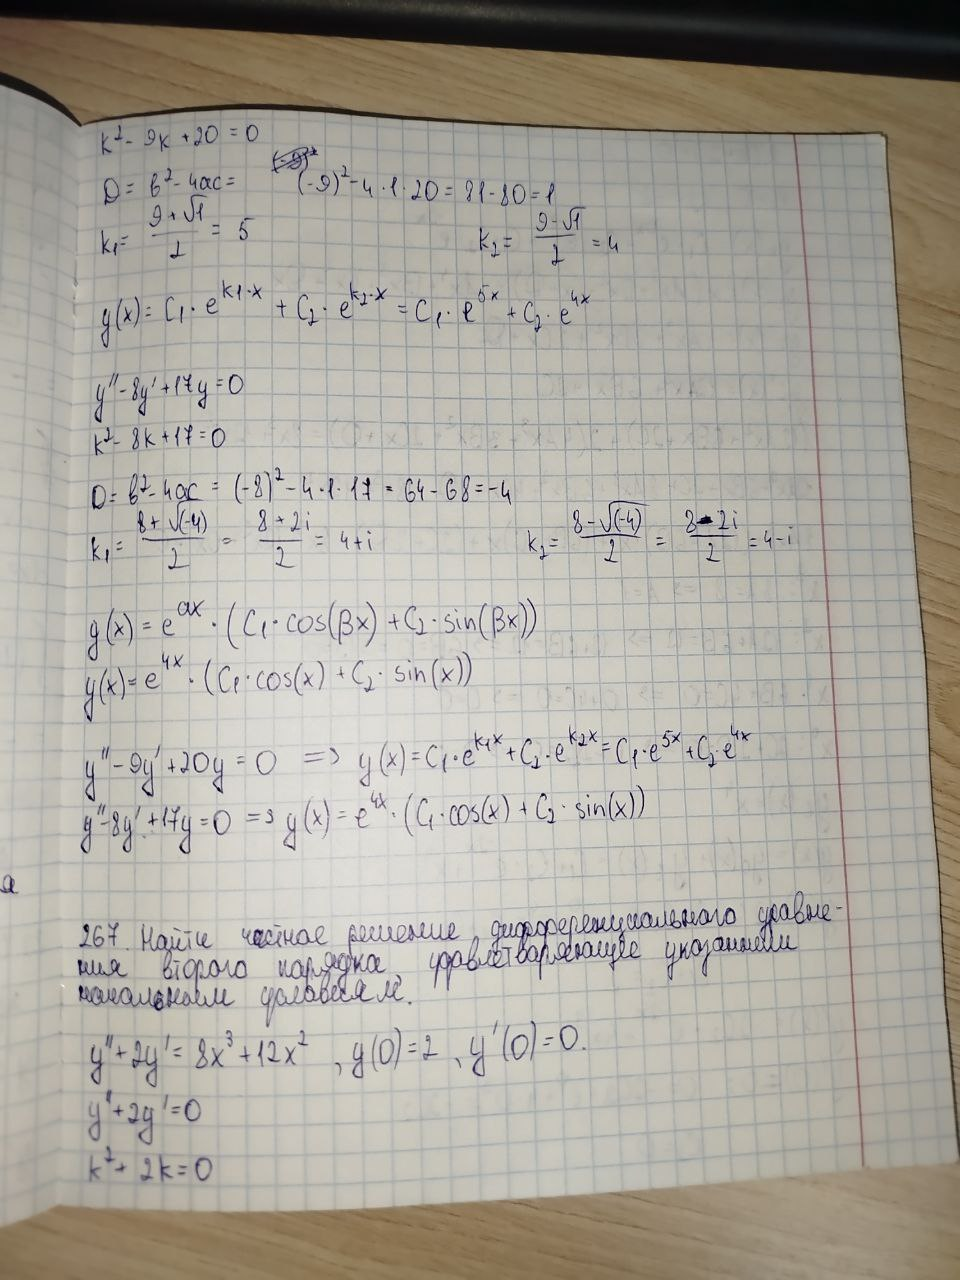 k² - 9k + 20 = 0
D = b² - 4ac = (-9)² - 4·1·20 = 81 - 80 = 1
k₁ = (9+√1)/2 = 5 k₂ = (9-√1)/2 = 4
y(x) = C₁·e^(k1·x) + C₂·e^(k2·x) = C₁·e^(5x) + C₂·e^(4x)
y'' - 8y' + 17y = 0
k² - 8k + 17 = 0
D = b² - 4ac = (-8)² - 4·1·17 = 64 - 68 = -4
k₁ = (8+√(-4))/2 = (8+2i)/2 = 4+i k₂ = (8-√(-4))/2 = (8-2i)/2 = 4-i
y(x) = e^(αx)·(C₁·cos(βx) + C₂·sin(βx))
y(x) = e^(4x)·(C₁·cos(x) + C₂·sin(x))
y'' - 9y' + 20y = 0 => y(x) = C₁·e^(k1x) + C₂·e^(k2x) = C₁·e^(5x) + C₂·e^(4x)
y'' - 8y' + 17y = 0 => y(x) = e^(4x)·(C₁·cos(x) + C₂·sin(x))
я
267. Найти частное решение дифференциального уравне-
ния второго порядка, удовлетворяющее указанным
начальным условиям.
y'' + 2y' = 8x³ + 12x², y(0) = 2, y'(0) = 0.
y'' + 2y' = 0
k² + 2k = 0